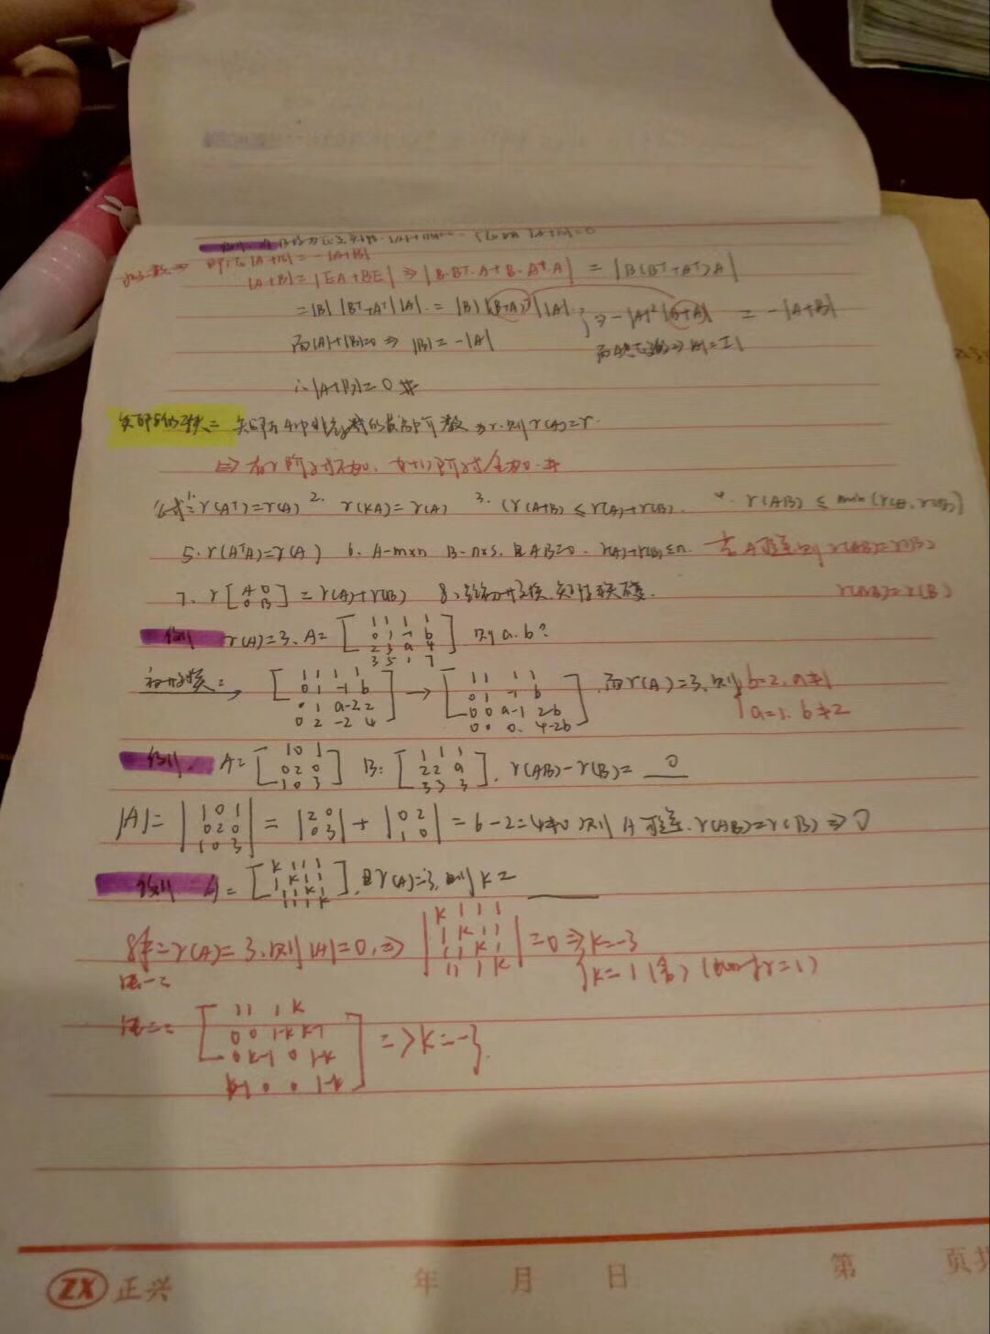 |A+B| = |EA+BE| ⇒ |B·Bᵀ·A+B·Aᵀ·A| = |B(Bᵀ+Aᵀ)A|
=|B| |Bᵀ+Aᵀ| |A| = |B| |(B+A)ᵀ| |A| ⇒ -|A|²|B+A| = -|A+B|
而|A|+|B|=0 ⇒ |B| = -|A|
∴|A+B|=0 #
矩阵的秩: 矩阵A中非零子式的最高阶数为r,则r(A)=r
⇒ 有r阶子式不为0, r+1阶子式全为0.#
公式: 1. r(Aᵀ)=r(A) 2. r(KA)=r(A) 3. r(A+B)≤r(A)+r(B). 4. r(AB)≤min(r(A),r(B))
5. r(AᵀA)=r(A) 6. A-m×n B-n×s,且AB=0. r(A)+r(B)≤n. 若A可逆则r(AB)=r(B)
7. r[A 0
0 B] = r(A)+r(B) 8. r(AB)=r(B)
例 r(A)=3. A=[1 1 1 1
0 1 -1 b
2 3 a 4
3 5 1 7] 则 a.b?
初等变换: [1 1 1 1
0 1 -1 b
0 1 a-2 2
0 2 -2 4] → [1 1 1 1
0 1 -1 b
0 0 a-1 2-b
0 0 0 4-2b],而r(A)=3,则{b=2, a≠1
a=1, b≠2
例. A=[1 0 1
0 2 0
1 0 3] B=[1 1 1
2 2 a
3 3 3]. r(AB)-r(B)= 0
|A|=|1 0 1
0 2 0
1 0 3| = |2 0
0 3| + |0 2
1 0| = 6-2=4≠0 则 A可逆. r(AB)=r(B) ⇒ 0
例 A=[k 1 1 1
1 k 1 1
1 1 k 1
1 1 1 k],且r(A)=3,则k=
解: r(A)=3,则|A|=0,⇒ |k 1 1 1
1 k 1 1
1 1 k 1
1 1 1 k| =0 ⇒ k=-3
k=1 (舍) (此时r=1)
法一:
法二: [1 1 1 k
0 0 1-k k-1
0 k-1 0 1-k
k-1 0 0 1-k] ⇒ k=-3.
ZX 正兴 年 月 日 第 页共